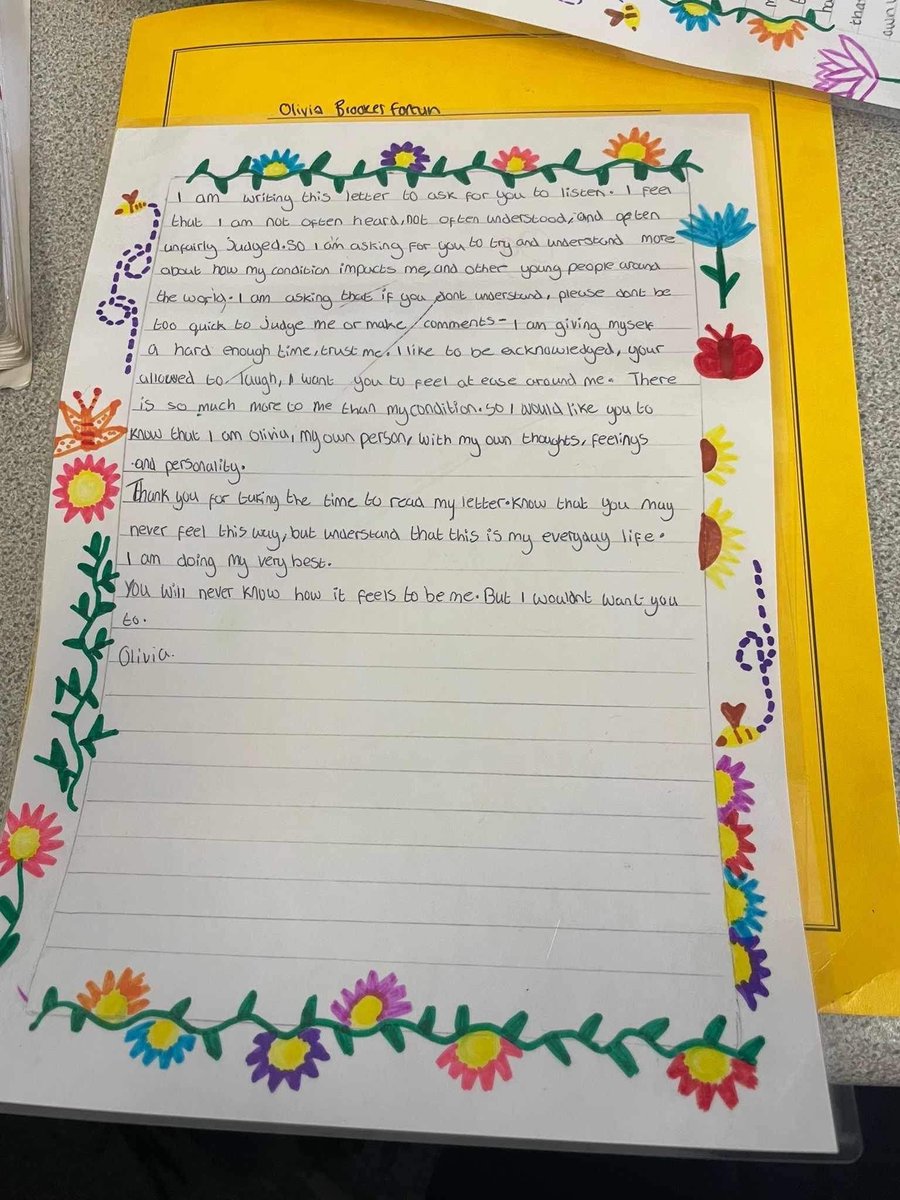 Olivia Brookes Fortun
I am writing this letter to ask for you to listen. I feel
that I am not often heard, not often understood, and often
unfairly judged. So I am asking for you to try and understand more
about how my condition impacts me, and other young people around
the world. I am asking that if you dont understand, please dont be
too quick to judge me or make comments - I am giving myself
a hard enough time, trust me. I like to be acknowledged, your
allowed to laugh, I want you to feel at ease around me. There
is so much more to me than my condition. So I would like you to
know that I am Olivia, my own person, with my own thoughts, feelings
and personality.
Thank you for taking the time to read my letter. Know that you may
never feel this way, but understand that this is my everyday life.
I am doing my very best.
You will never know how it feels to be me. But I wouldnt want you
to.
Olivia.